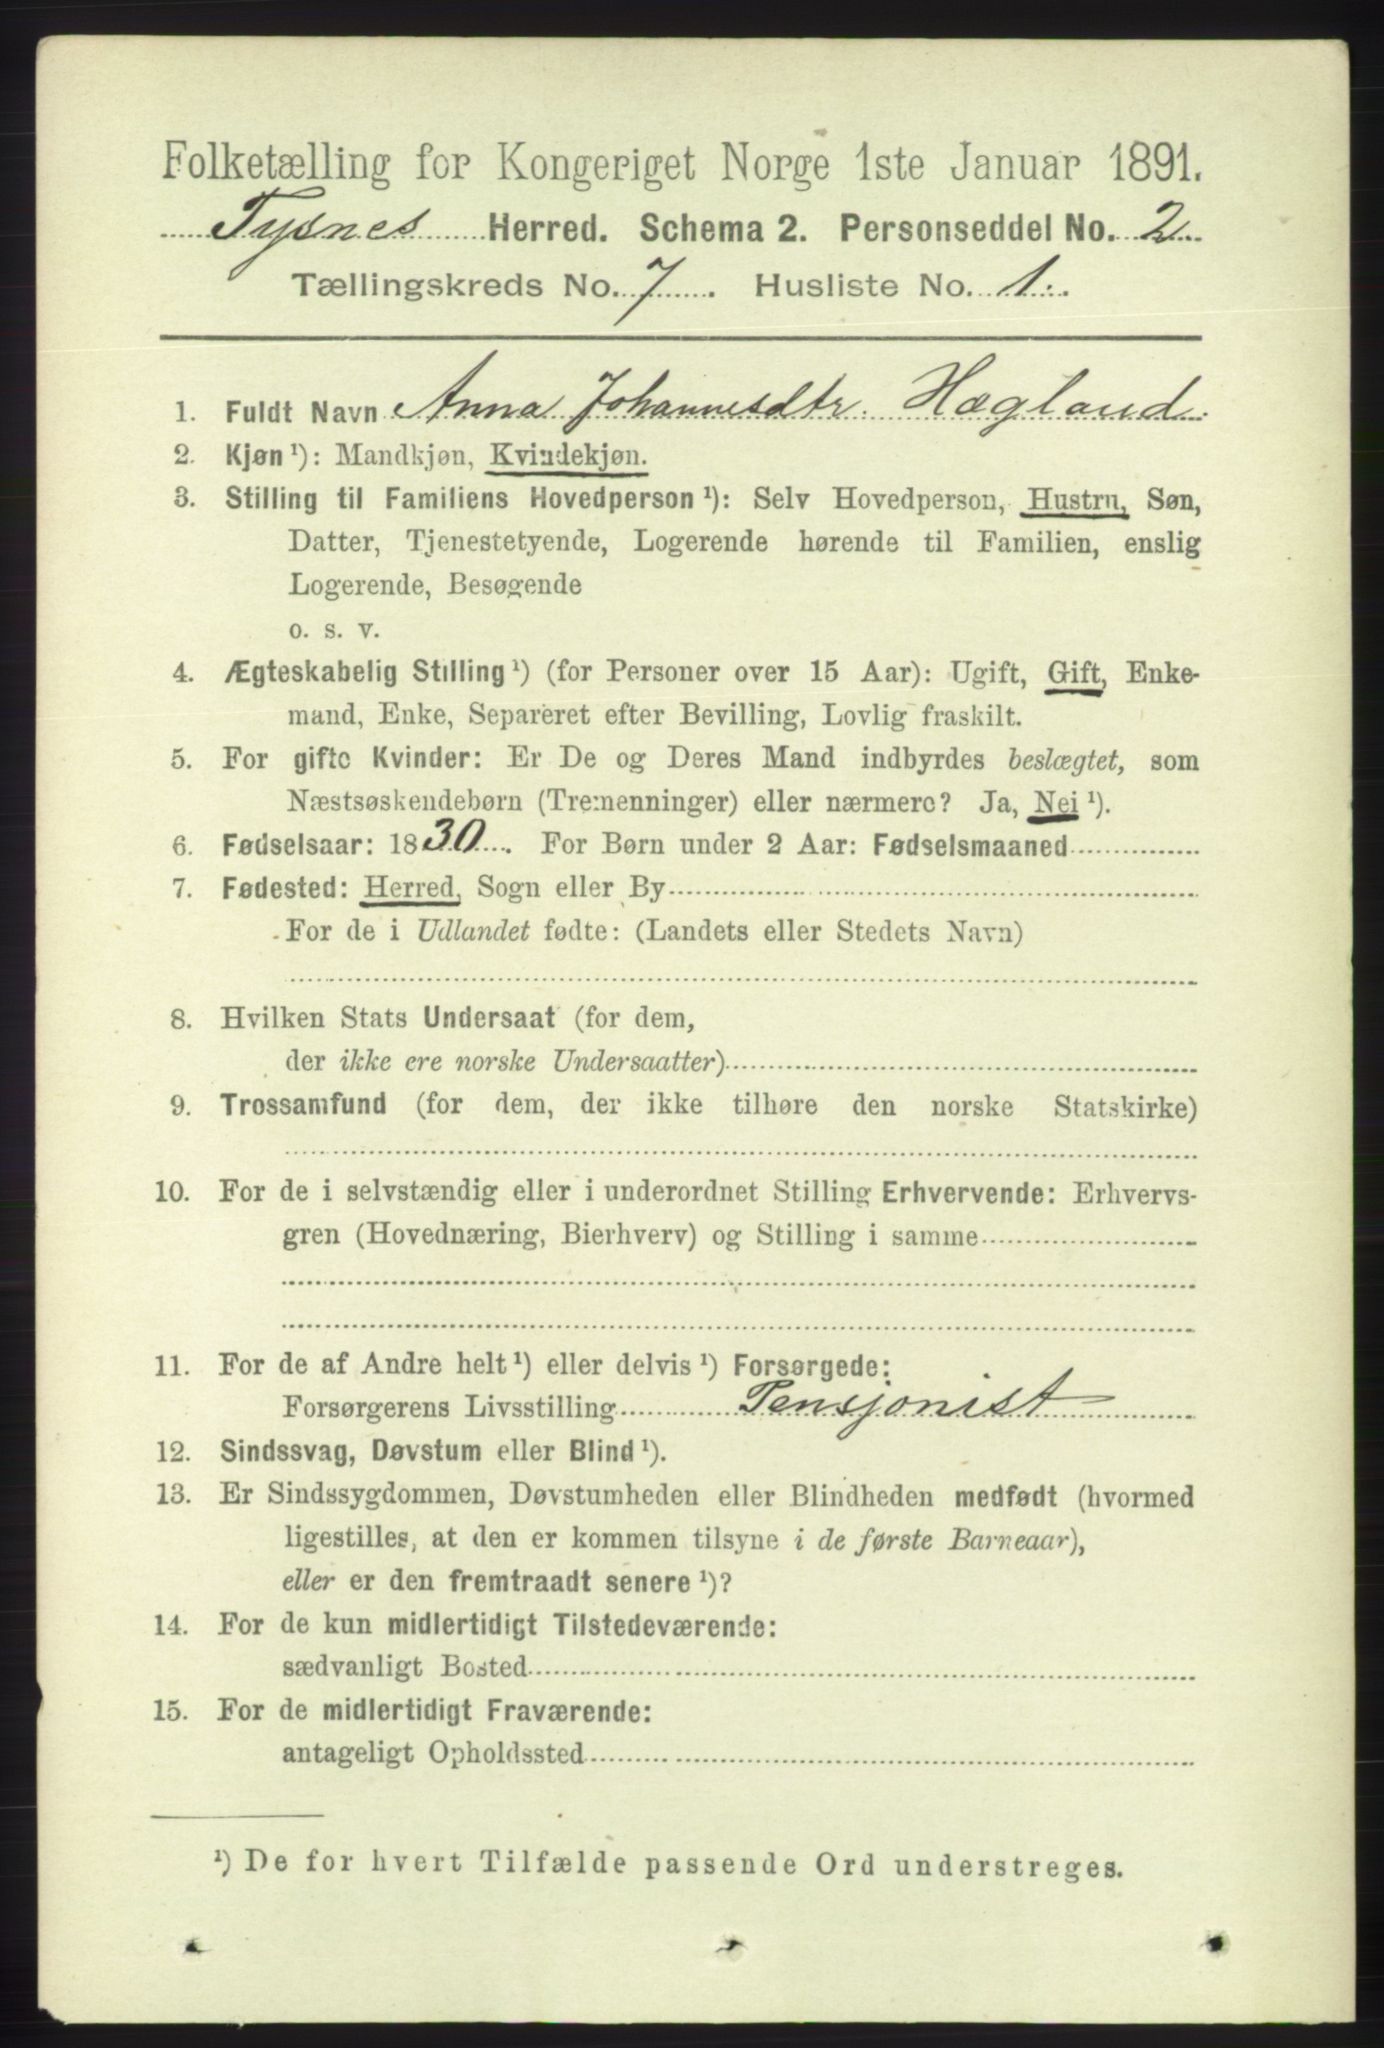 Folketælling for Kongeriget Norge 1ste Januar 1891.
Tysnes Herred. Schema 2. Personseddel No. 2
Tællingskreds No. 7. Husliste No. 1.
1. Fuldt Navn Anna Johannesdtr. Hægland.
2. Kjøn ¹): Mandkjøn, Kvindekjøn.
3. Stilling til Familiens Hovedperson ¹): Selv Hovedperson, Hustru, Søn,
Datter, Tjenestetyende, Logerende hørende til Familien, enslig
Logerende, Besøgende
o. s. v.
4. Ægteskabelig Stilling ¹) (for Personer over 15 Aar): Ugift, Gift, Enke-
mand, Enke, Separeret efter Bevilling, Lovlig fraskilt.
5. For gifte Kvinder: Er De og Deres Mand indbyrdes beslægtet, som
Næstsøskendebørn (Tremenninger) eller nærmere? Ja, Nei ¹).
6. Fødselsaar: 1830. For Børn under 2 Aar: Fødselsmaaned
7. Fødested: Herred, Sogn eller By
For de i Udlandet fødte: (Landets eller Stedets Navn)
8. Hvilken Stats Undersaat (for dem,
der ikke ere norske Undersaatter)
9. Trossamfund (for dem, der ikke tilhøre den norske Statskirke)
10. For de i selvstændig eller i underordnet Stilling Erhvervende: Erhvervs-
gren (Hovednæring, Bierhverv) og Stilling i samme
11. For de af Andre helt ¹) eller delvis ¹) Forsørgede:
Forsørgerens Livsstilling Pensjonist
12. Sindssvag, Døvstum eller Blind ¹).
13. Er Sindssygdommen, Døvstumheden eller Blindheden medfødt (hvormed
ligestilles, at den er kommen tilsyne i de første Barneaar),
eller er den fremtraadt senere ¹)?
14. For de kun midlertidigt Tilstedeværende:
sædvanligt Bosted
15. For de midlertidigt Fraværende:
antageligt Opholdssted
¹) De for hvert Tilfælde passende Ord understreges.